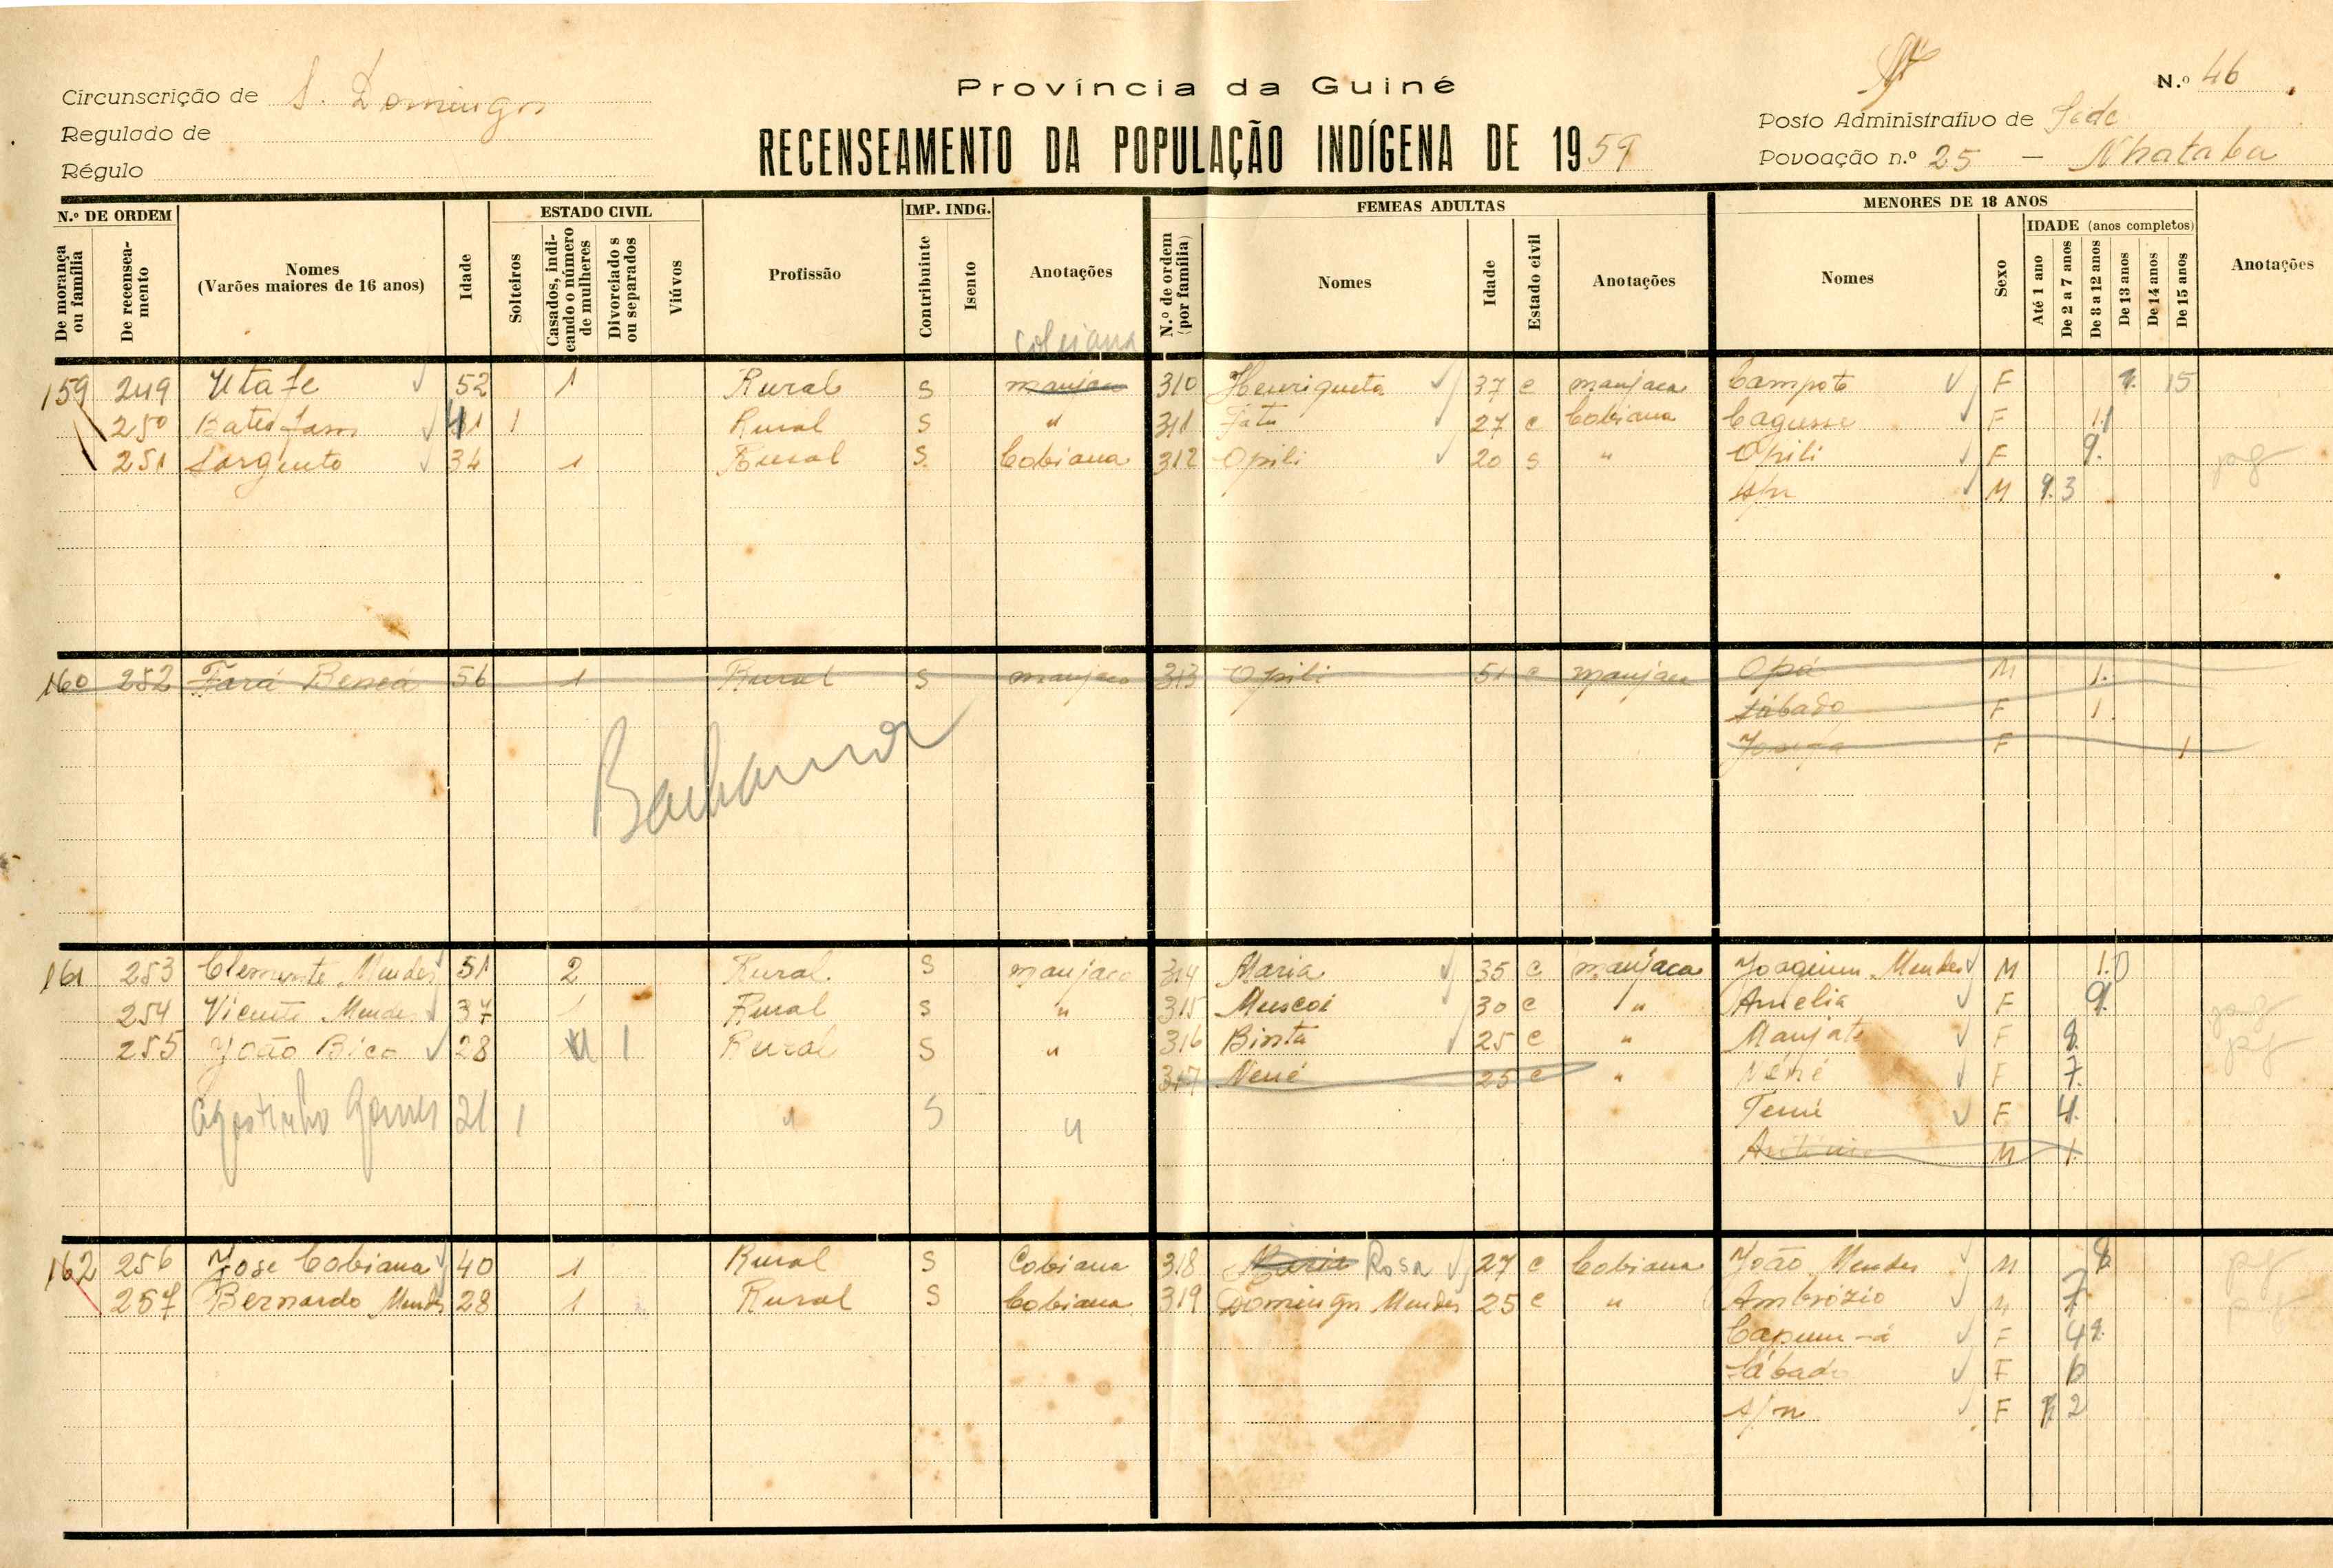 Província da Guiné
N.º 46
Circunscrição de S. Domingos
Regulado de
Régulo
RECENSEAMENTO DA POPULAÇÃO INDÍGENA DE 1959
Posto Administrativo de Sede
Povoação n.º 25 — Nhataba
N.º DE ORDEM
De morança ou família
De recenseamento
Nomes (Varões maiores de 16 anos)
Idade
ESTADO CIVIL
Solteiros
Casados, indicando o número de mulheres
Divorciados ou separados
Viúvos
Profissão
IMP. INDG.
Contribuinte
Isento
Anotações
FEMEAS ADULTAS
N.º de ordem (por família)
Nomes
Idade
Estado civil
Anotações
MENORES DE 18 ANOS
Nomes
Sexo
IDADE (anos completos)
Até 1 ano
De 2 a 7 anos
De 8 a 12 anos
De 13 anos
De 14 anos
De 15 anos
Anotações
cobiana
159 249 Utafe 52 1 Rural S manjaco 310 Henriqueta 37 c manjaca Campote F 15
250 41 1 Rural S " 311 Fatu 27 c Cobiana Cagusse F 11
251 Sargento 34 1 Rural S. Cobiana 312 Opili 20 s " Opili F 9.
S/n M 3
160 252 Fará Bencá 56 1 Rural S manjaco 313 Opili 51 c manjaca Opá M 1.
Sábado F 1.
Josefa F 1
161 253 Clemente Mendes 51 2 Rural. S manjaco 314 Maria 35 c manjaca Joaquim Mendes M 10
254 Vicente Mendes 37 1 Rural S " 315 Muscoi 30 c " Amelia F 9.
255 João Bico 28 1 Rural S " 316 Binta 25 c " Manjate F 8
317 Nené 25 c " Néné F 7.
Agostinho Gomes 21 1 " S " Temé F 4.
António M 1.
162 256 José Cobiana 40 1 Rural S Cobiana 318 Maria Rosa 27 c Cobiana João Mendes M 8
257 Bernardo Mendes 28 1 Rural S Cobiana 319 Domingas Mendes 25 c " Ambrózio M 7
F 4
Sábado F 6
S/n F 2